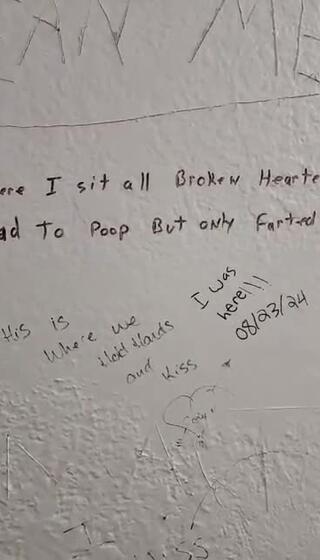 AN ME
ere I sit all Broken Hearte
ad To Poop But only Farted
I was
here!!!
08/23/24
His is
Where we
Hold Hands
and Kiss